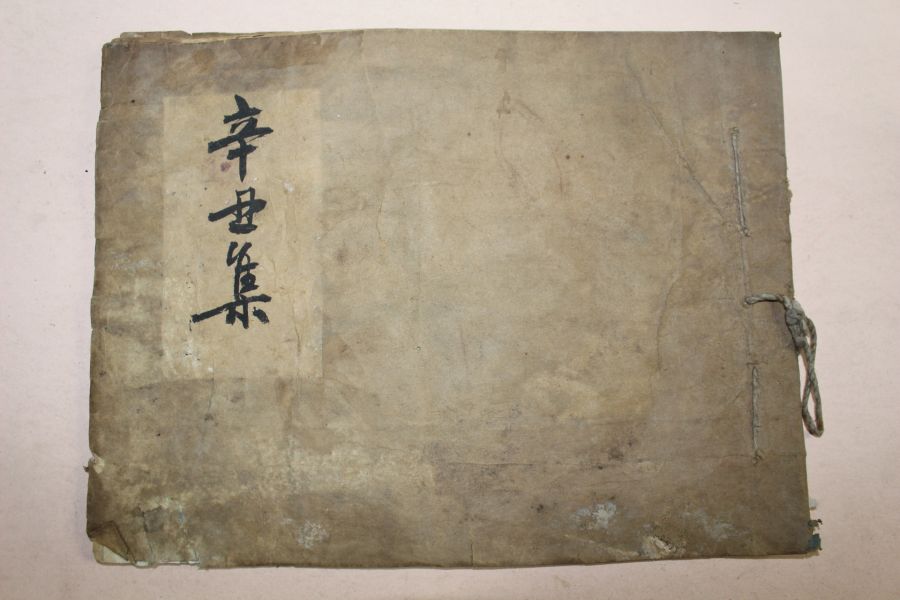 辛丑集